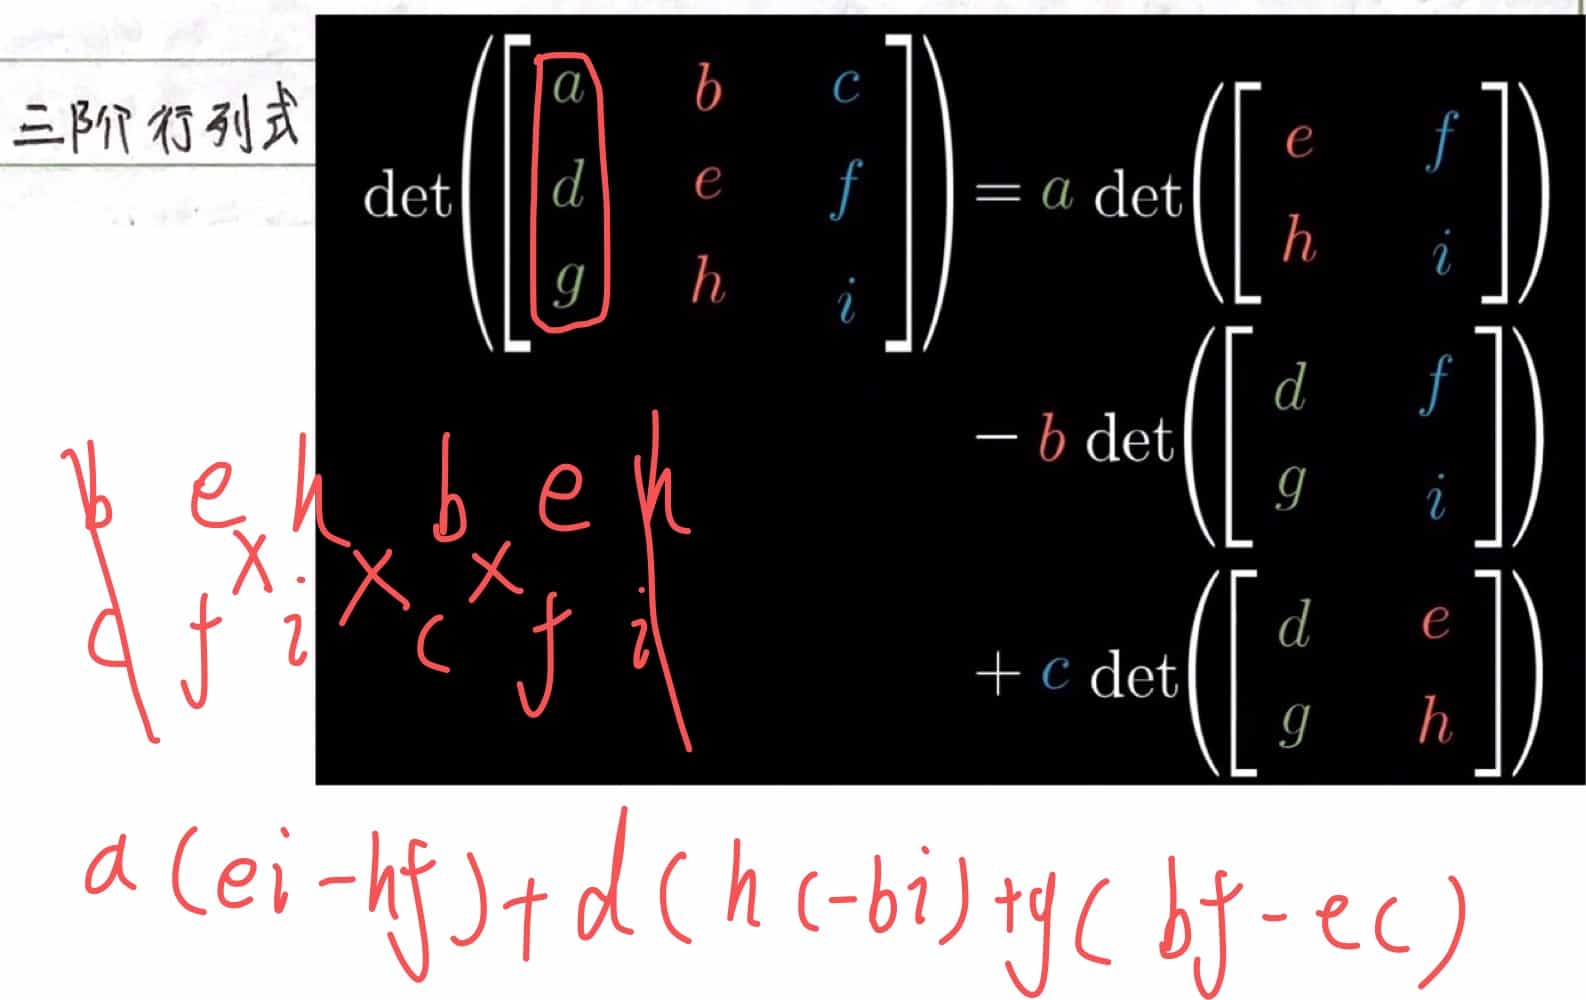 三阶行列式
det([a b c
d e f
g h i]) = a det([e f
h i])
- b det([d f
g i])
+ c det([d e
g h])
b e h b e h
× × ×
c f i c f i
a(ei-hf)+d(hc-bi)+g(bf-ec)